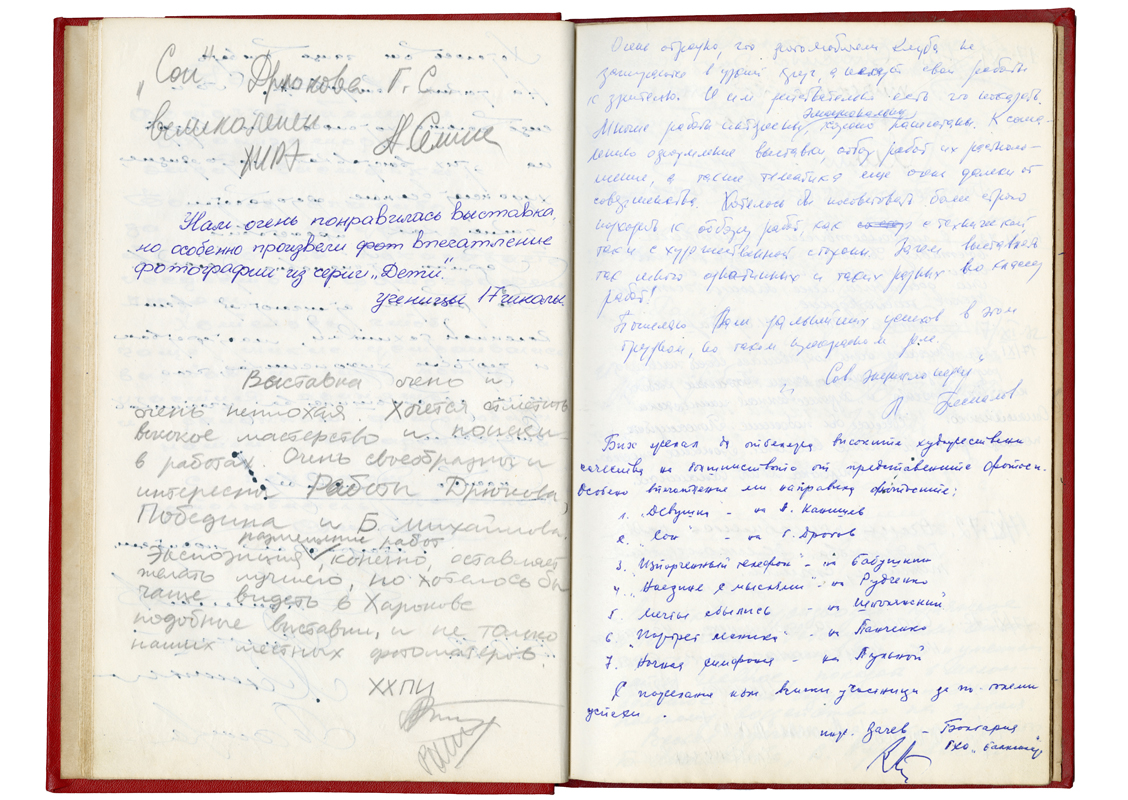 „Сон" Дрюкова Г. С.
великолепен
ХИРЭ
Нам очень понравилась выставка,
но особенно произвели впечатление
фотографии из серии „Дети".
ученицы 17 школы.
Выставка очень и
очень неплохая Хочется отметить
высокое мастерство и поиски
в работах. Очень своеобразны и
интересны Работы Дрюкова,
Победина и Б. Михайлова.
размещение работ
Экспозиция, конечно, оставляет
желать лучшего, но хотелось бы
чаще видеть в Харькове
подобные выставки, и не только
наших местных фотомастеров.
ХХПИ
Очень отрадно, что фотолюбители клуба не
замыкаются в узкий круг, а несут свои работы
к зрителю. И им действительно есть что показать.
эмоционально
Многие работы интересны, хорошо К сожа-
лению оформление выставки, отбор работ их располо-
жение, а также тематика еще очень далеки от
совершенства. Хотелось бы посоветовать более строго
подходить к отбору работ, как с технической,
так и с художественной стороны. Зачем выставлять
так много однотипных и таких разных по классу
работ!
Пожелаю Вам дальнейших успехов в этом
трудном, но таком прекрасном деле.
Бих желал да отбележа високите художествени
качества на болшинството от представените фотоси.
Особено впечатление ми направиха фотосите:
1. „Девушка" - на
2. „Сон" - на Г. Дрюков
3. „Испорченный телефон" - на Бабушкин
4. „Наедине с мыслями" - на Рудченко
5. Мечты сбылись - на
6. „Портрет летчика" - на Панченко
7. Ночная симфония - на
И пожелавам към всички участници за по-големи
успехи.
Зачев - България